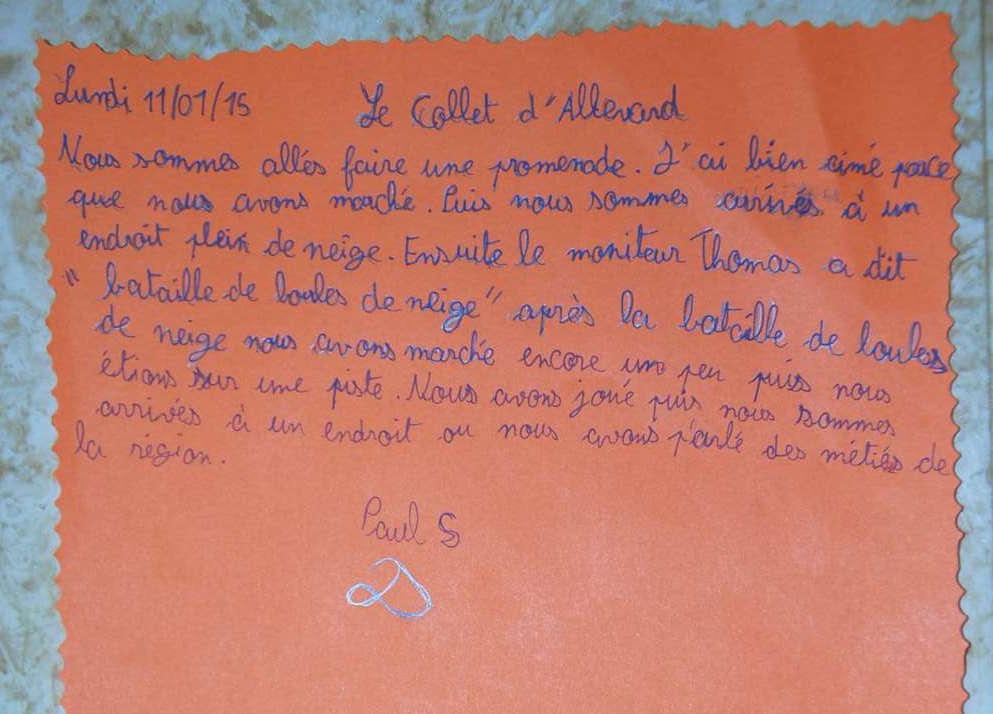 Lundi 11/01/15 Le Collet d'Allevard
Nous sommes allés faire une promenade. J'ai bien aimé parce
que nous avons marché. Puis nous sommes arrivés à un
endroit plein de neige. Ensuite le moniteur Thomas a dit
"bataille de boules de neige" après la bataille de boules
de neige nous avons marché encore un peu puis nous
étions sur une piste. Nous avons joué puis nous sommes
arrivés à un endroit ou nous avons parlé des métiés de
la région.
Paul S